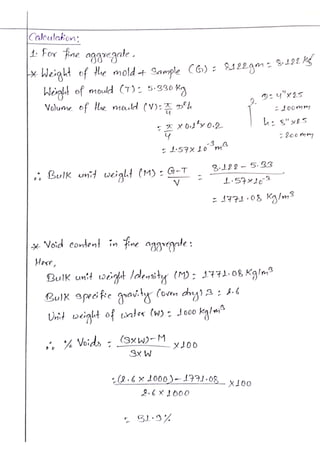 Calculation:
1. For fine aggregate.
* Weight of the mold + Sample (G) = 8122 gm = 8.122 kg
Weight of mould (T) = 5.330 Kg
Volume of the mould (V) = π/4 D²h
D = 4"x25
= 100mm
h = 8"x25
= 200mm
= π/4 x 0.1² x 0.2
= 1.57x10⁻³ m³
∴ Bulk unit weight (M) = G-T / V = 8.122 - 5.33 / 1.57x10⁻³
= 1771.08 Kg/m³
* Void content in fine aggregate:
Here,
Bulk unit weight/density (M) = 1771.08 Kg/m³
Bulk specific gravity (oven dry) S = 2.6
Unit weight of water (W) = 1000 kg/m³
∴ % Voids = (SxW) - M / SxW x100
= (2.6 x 1000) - 1771.08 / 2.6 x 1000 x100
= 31.9%